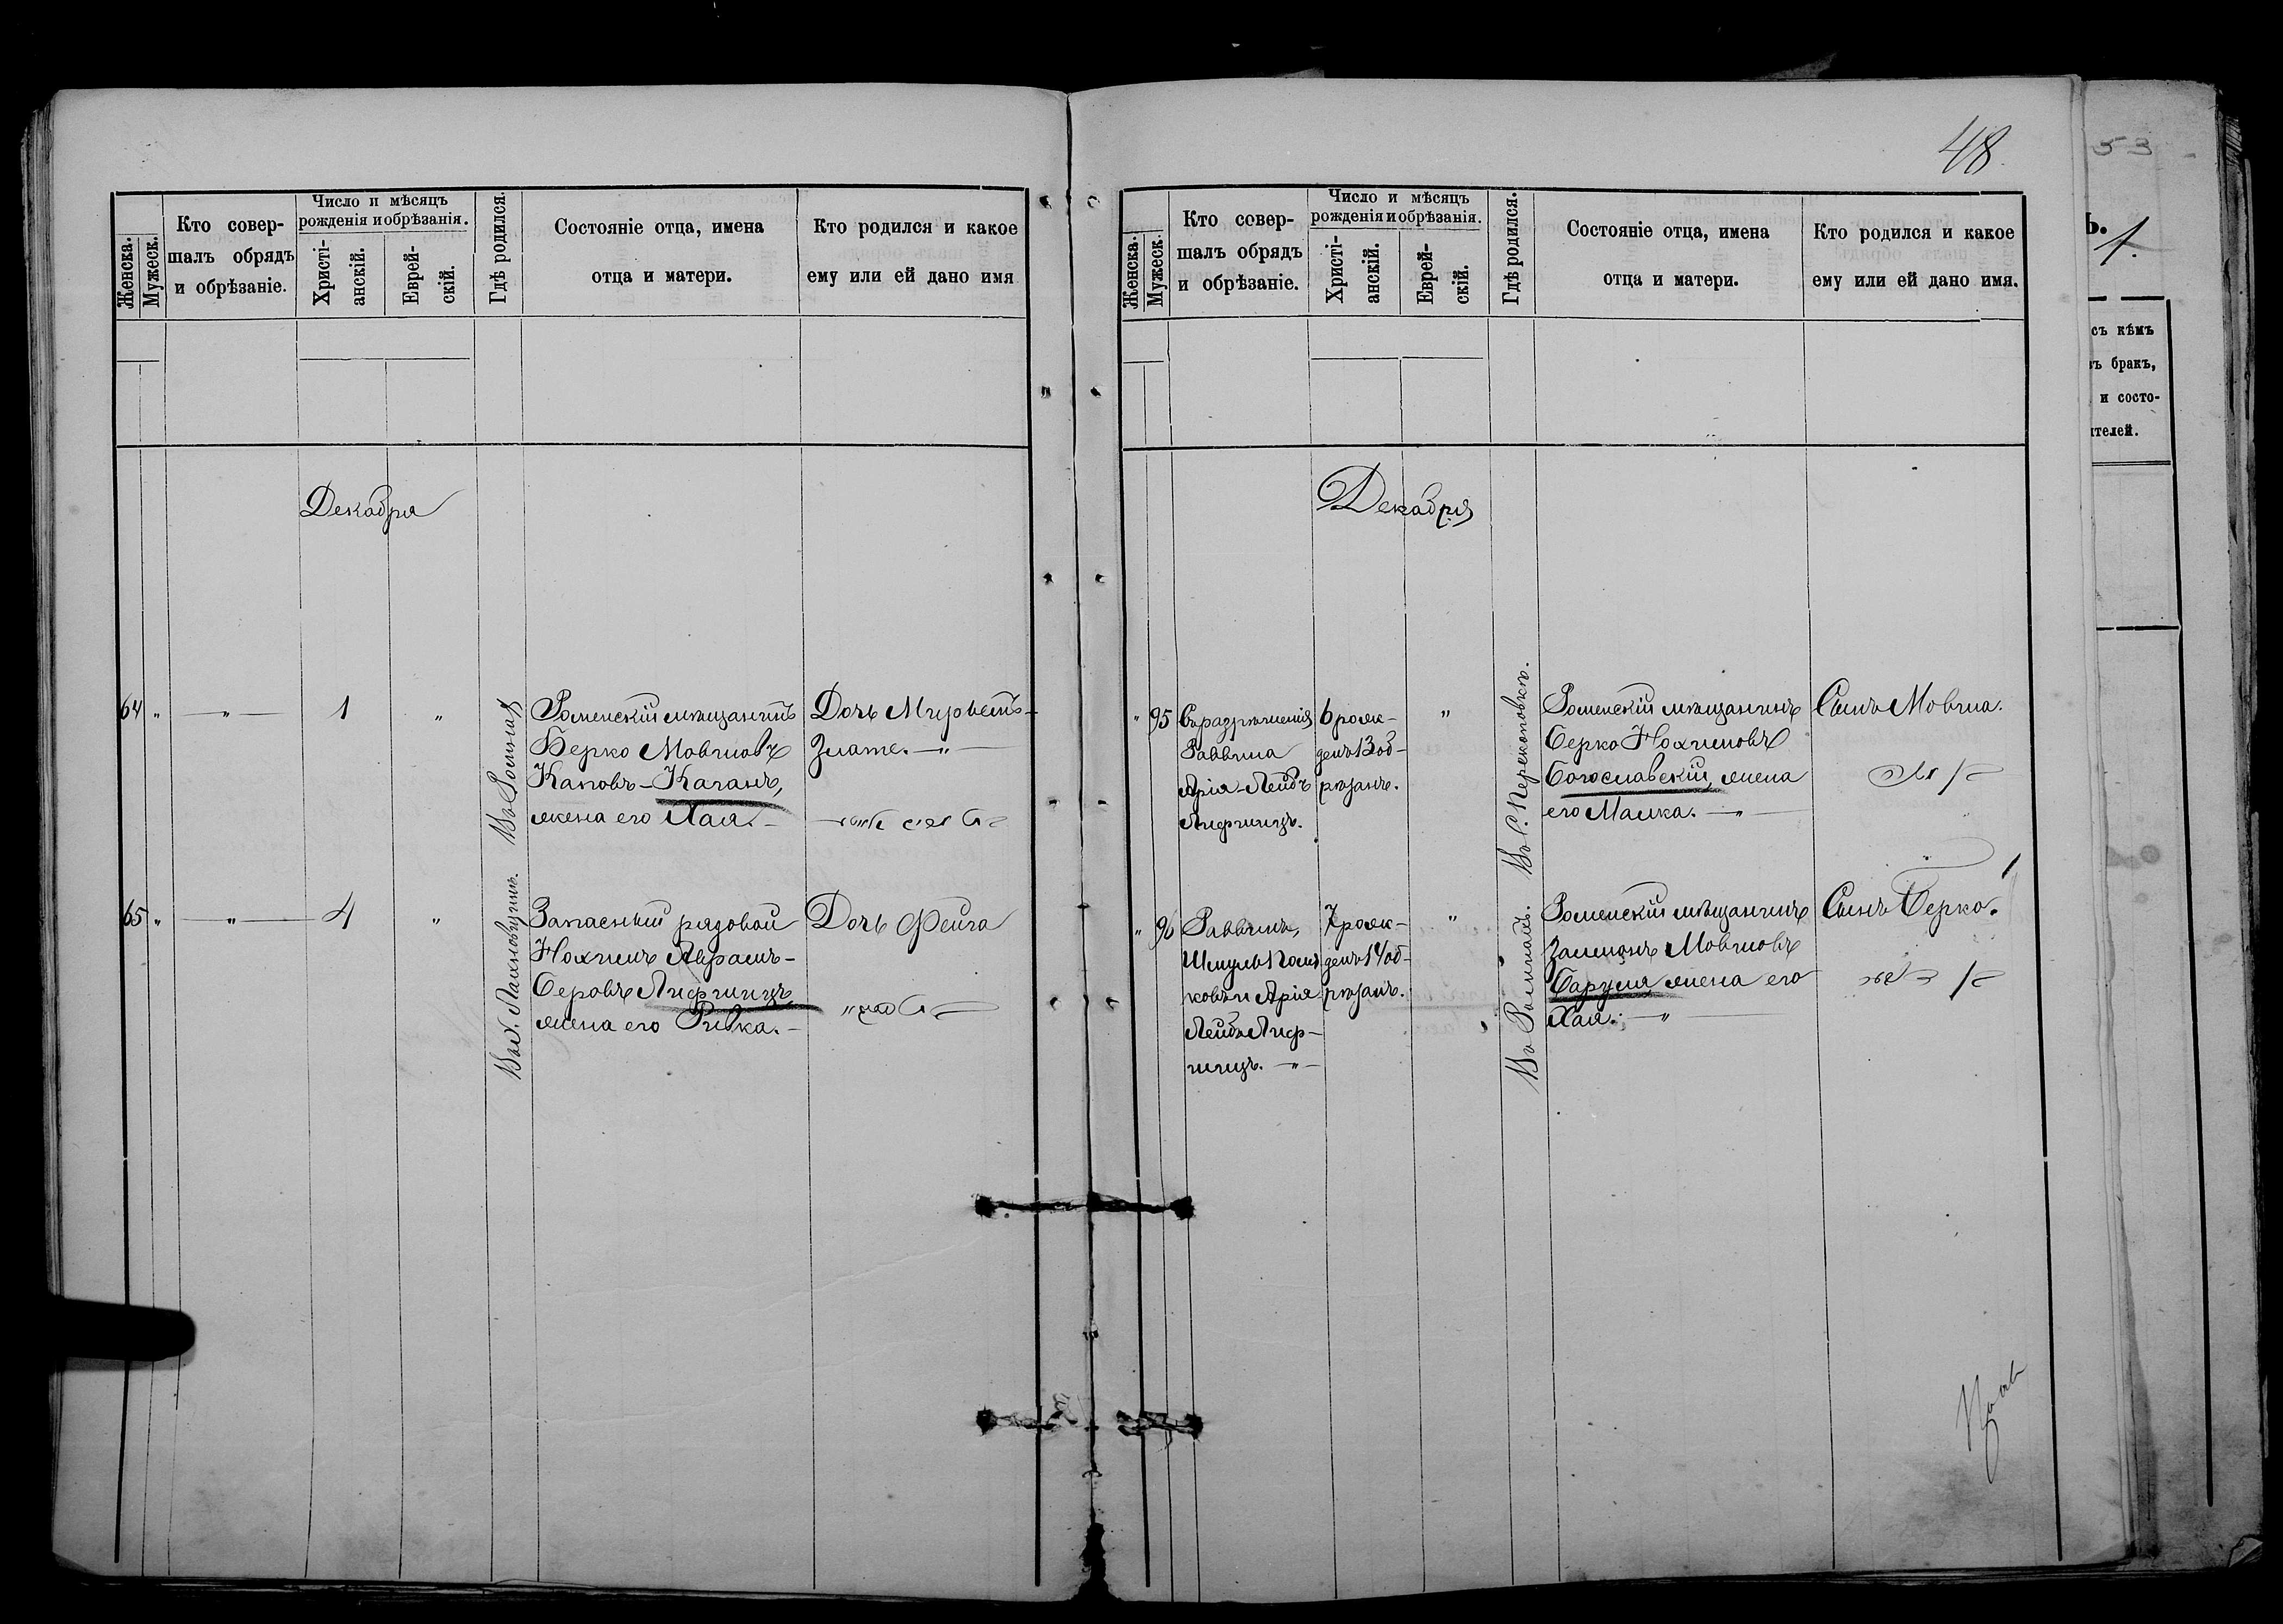 48.
Женска.
Мужеск.
Кто совер-
шалъ обрядъ
и обрѣзаніе.
Число и мѣсяцъ
рожденія и обрѣзанія.
Христі-
анскій.
Еврей-
скій.
Гдѣ родился.
Состояніе отца, имена
отца и матери.
Кто родился и какое
ему или ей дано имя
Декабря
64 " — " — 1 "
Въ Ромнахъ
Роменскій мѣщанинъ
Берко Мовшовъ
Кановъ-Каганъ,
жена его Хая. —
Дочь Мирьемъ-
Злате. — " —
65 " — " — 4 "
Запасный рядовой
Нохимъ Абрамъ-
Беровъ Лифшицъ
жена его Ривка. —
Дочь Фейга
Женска.
Мужеск.
Кто совер-
шалъ обрядъ
и обрѣзаніе.
Число и мѣсяцъ
рожденія и обрѣзанія.
Христі-
анскій.
Еврей-
скій.
Гдѣ родился.
Состояніе отца, имена
отца и матери.
Кто родился и какое
ему или ей дано имя.
Декабря
" 95
Съ разрѣшенія
Раввина
Арія-Лейбъ
Лифшицъ.
6 рож-
денъ 13 об-
рѣзанъ.
"
Въ С. Перекоповкѣ.
Роменскій мѣщанинъ
Берко Нохимовъ
Богославскій, жена
его Малка. — " —
Сынъ Мовша.
" 96
Раввинъ,
и Арія
Лейбъ Лиф-
шицъ. — " —
7 рож-
денъ 14 об-
рѣзанъ.
"
Въ Ромнахъ.
Роменскій мѣщанинъ
Залманъ Мовшовъ
жена его
Хая. — " —
Сынъ Берко.
53
ъ.
1.
съ кѣмъ
ъ бракъ,
и состо-
ителей.